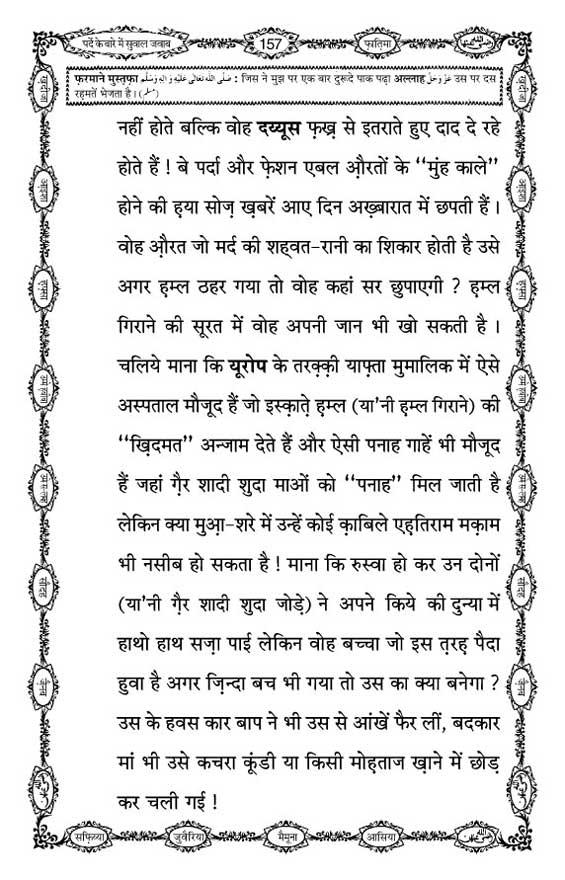 पर्दे के बारे में सुवाल जवाब
157
फ़ातिमा
फ़रमाने मुस्तफ़ा صَلَّى اللّٰهُ تَعَالٰى عَلَيْهِ وَاٰلِهٖ وَسَلَّم : जिस ने मुझ पर एक बार दुरूदे पाक पढ़ा अल्लाह عَزَّوَجَلَّ उस पर दस
रहमतें भेजता है। (مسلم)
नहीं होते बल्कि वोह दय्यूस फ़ख़्र से इतराते हुए दाद दे रहे
होते हैं ! बे पर्दा और फ़ेशन एबल औ़रतों के ‘‘मुंह काले’’
होने की ह़या सोज़ ख़बरें आए दिन अख़्बारात में छपती हैं ।
वोह औ़रत जो मर्द की शह्वत-रानी का शिकार होती है उसे
अगर ह़म्ल ठहर गया तो वोह कहां सर छुपाएगी ? ह़म्ल
गिराने की सूरत में वोह अपनी जान भी खो सकती है ।
चलिये माना कि यूरोप के तरक़्क़ी याफ़्ता मुमालिक में ऐसे
अस्पताल मौजूद हैं जो इस्क़ात़े ह़म्ल (या'नी ह़म्ल गिराने) की
‘‘ख़िदमत’’ अन्जाम देते हैं और ऐसी पनाह गाहें भी मौजूद
हैं जहां ग़ैर शादी शुदा माओं को ‘‘पनाह’’ मिल जाती है
लेकिन क्या मुआ़-शरे में उन्हें कोई क़ाबिले एह़तिराम मक़ाम
भी नसीब हो सकता है ! माना कि रुस्वा हो कर उन दोनों
(या'नी ग़ैर शादी शुदा जोड़े) ने अपने किये की दुन्या में
हाथो हाथ सज़ा पाई लेकिन वोह बच्चा जो इस त़रह़ पैदा
हुवा है अगर ज़िन्दा बच भी गया तो उस का क्या बनेगा ?
उस के हवस कार बाप ने भी उस से आंखें फैर लीं, बदकार
मां भी उसे कचरा कूंडी या किसी मोह़ताज ख़ाने में छोड़
कर चली गई !
सफ़िय्या
जुवैरिया
मैमूना
आसिया